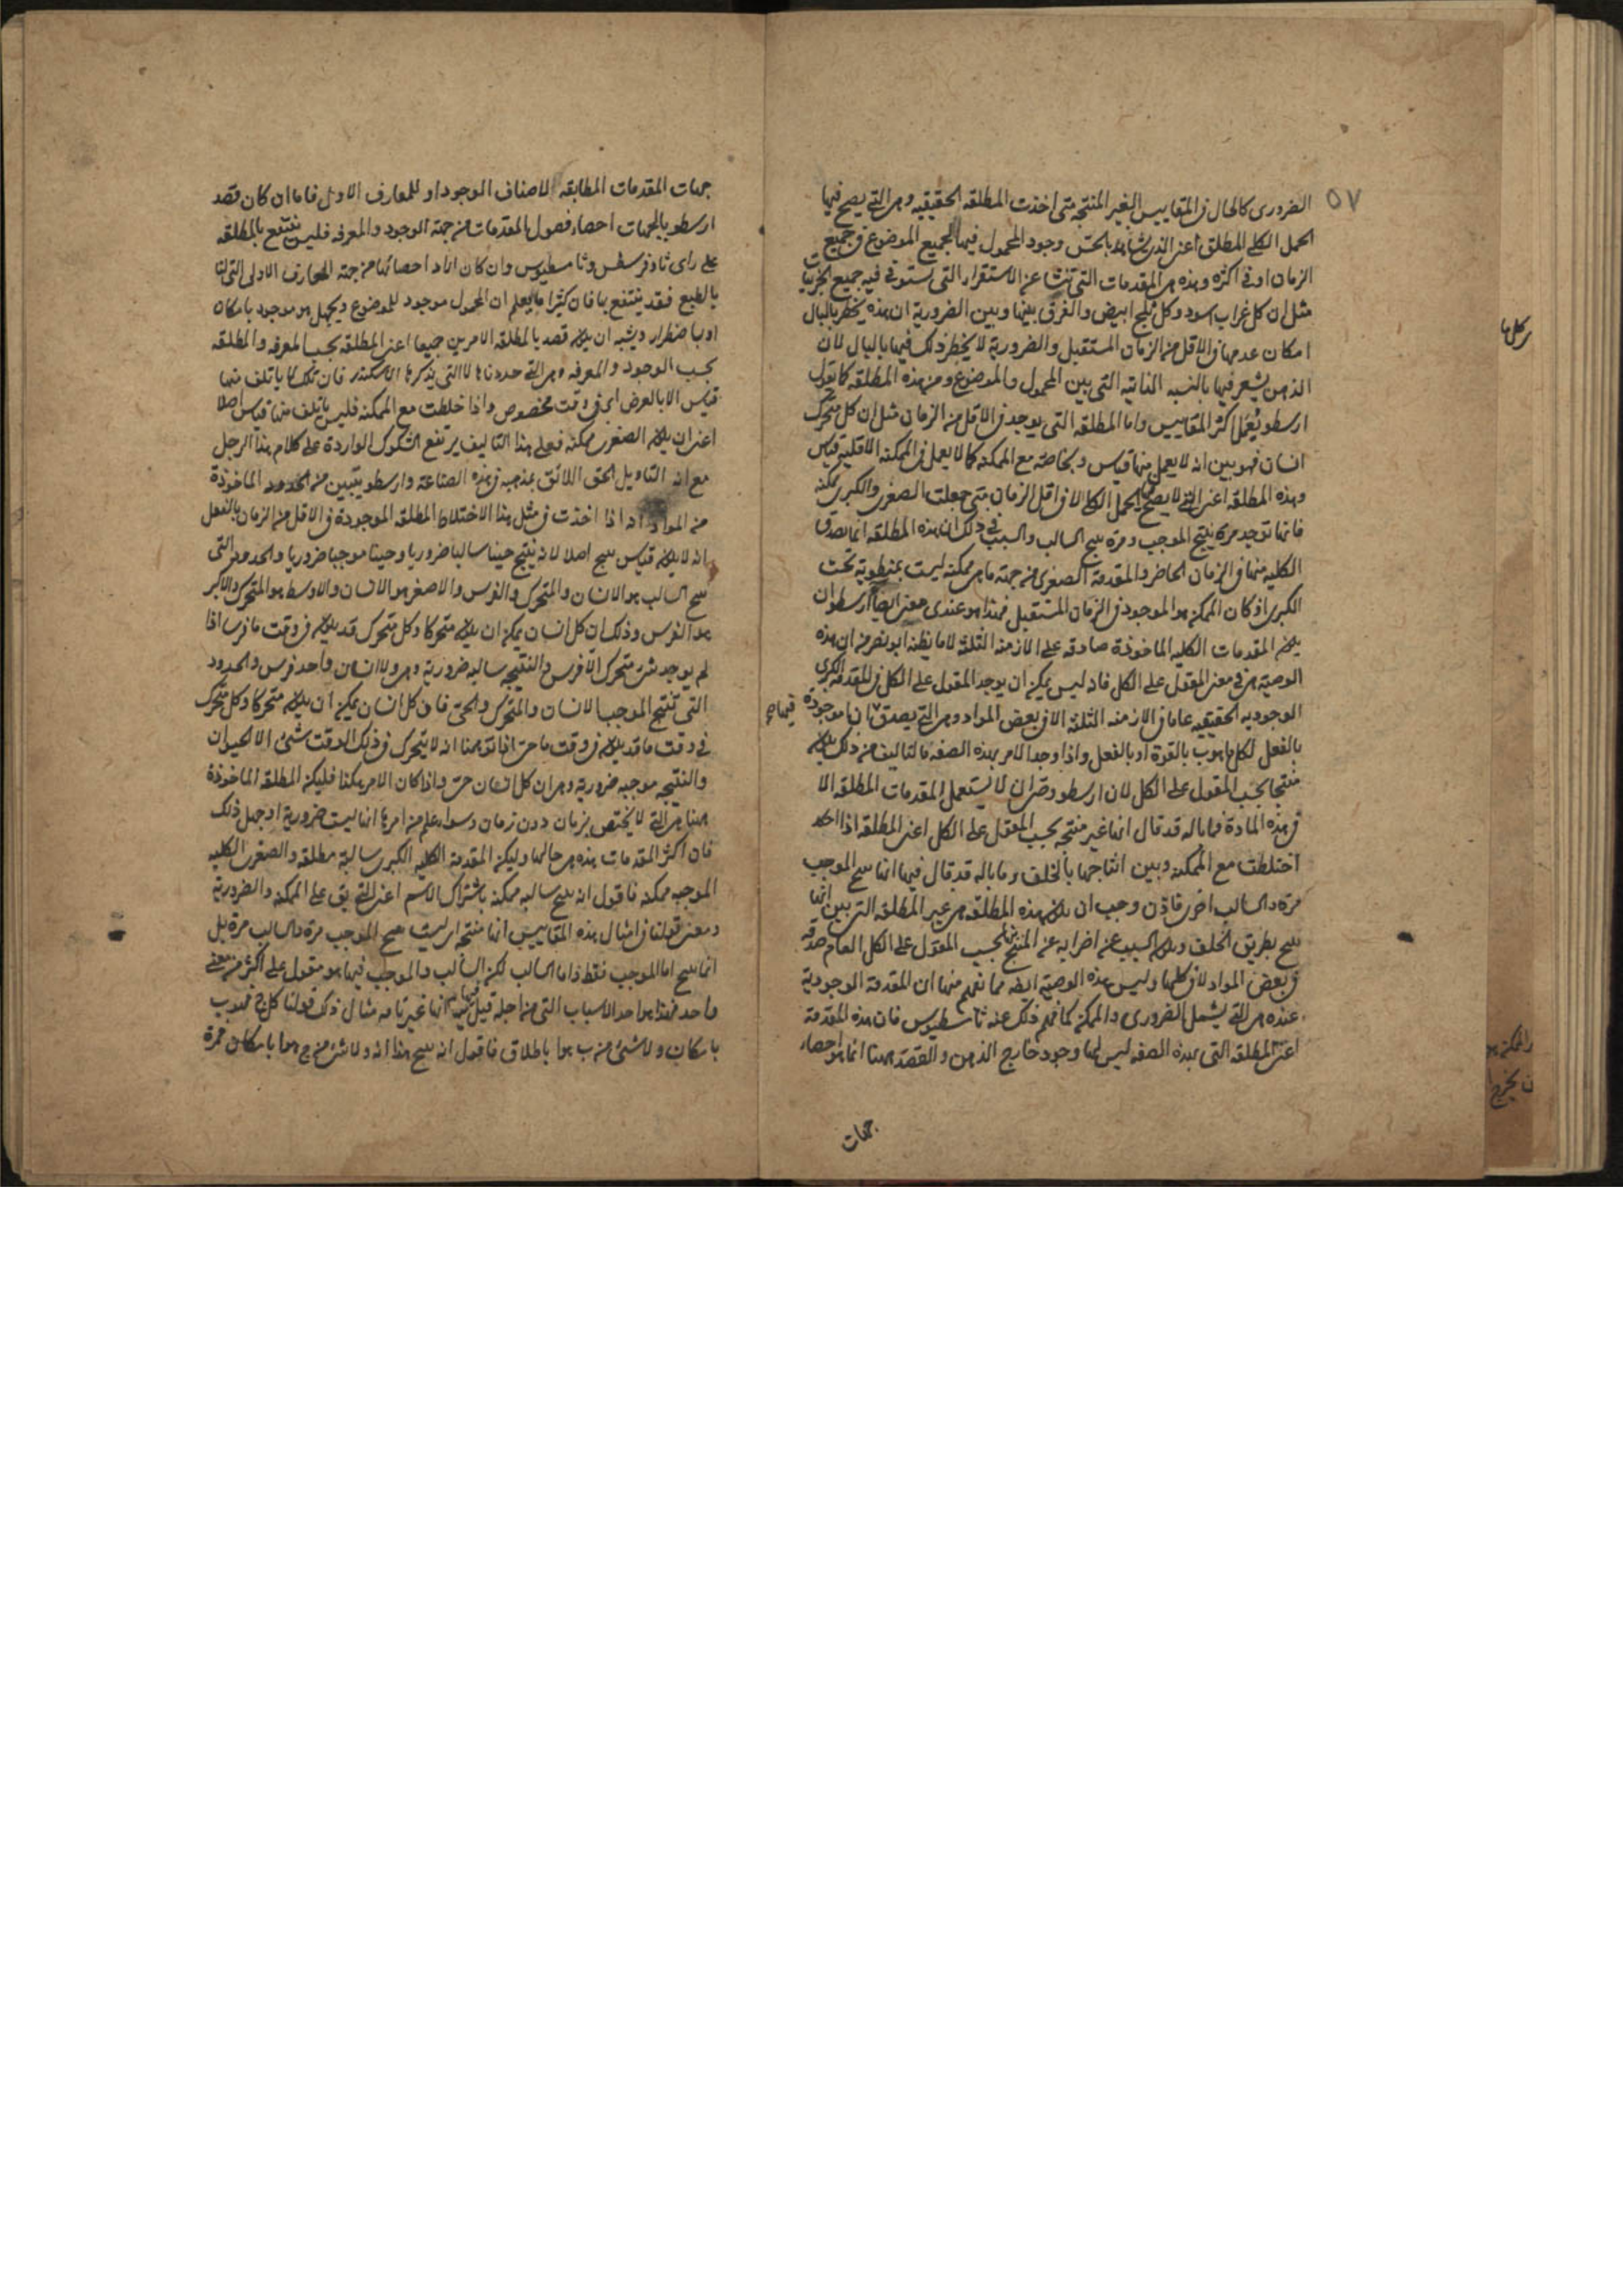 ٥٧
الضروري كالحال في المقاييس الغير المنتجة متى اخذت المطلقة الحقيقيه وهي التي يصح فيها
الحمل الكلي المطلق اعني الذي شاهد بالحس وجود المحمول فيها لجميع الموضوع في جميع
الزمان او في اكثره وهذه هي المقدمات التي تنشا عن الاستقراء التي يستوفي فيه جميع الجزئيات
مثل ان كل غراب اسود وكل ثلج ابيض والفرق بينها وبين الضرورية ان هذه يخطر بالبال
امكان عدمها في الاقل من الزمان المستقبل والضرورية لا يخطر ذلك فيها بالبال لان
الذهن يشعر فيها بالنسبه الذاتيه التي بين المحمول والموضوع ومن هذه المطلقه كما يقول
ارسطو يعمل اكثر المقاييس واما المطلقه التي يوجد في الاقل من الزمان مثل ان كل متحرك
انسان فهو بين انه لا يعمل منها قياس وبخاصة مع الممكنه كما لا يعمل في الممكنه الاقلية قياس
وهذه المطلقه اعني التي لا يصح فيها الحمل الكلي الا في اقل الزمان متى جعلت الصغرى والكبرى ممكنه
فانها توجد مرة ينتج الموجب ومرة ينتج السالب والسبب في ذلك ان هذه المطلقه انما تصدق
الكليه منها في الزمان الحاضر والمقدمة الصغرى من جهة ما هي ممكنه ليست بمنطوية تحت
الكبرى اذ كان الممكن هو الموجود في الزمان المستقبل فهذا هو عندي معنى ايصاء ارسطو ان
يكون المقدمات الكليه الماخوذة صادقه على الازمنه الثلثه لا ما يظنه ابو نصر من ان هذه
الوصية هي في معنى المقول على الكل فانه ليس يمكن ان يوجد المقول على الكل في المقدمه الكبرى
الوجوديه الحقيقيه عاما في الازمنه الثلثه الا في بعض المواد وهي التي يصدق فيها ان ا موجودة
فيها ج
بالفعل لكل ما هو ب بالقوة او بالفعل واذا وجد الامر بهذه الصفه فالتاليف من ذلك يكون
منتجا بحسب المقول على الكل لان ارسطو وصى ان لا يستعمل المقدمات المطلقه الا
في هذه المادة فما باله قد قال انها غير منتجه بحسب المقول على الكل اعني المطلقه اذا
اختلطت مع الممكنه وبين انتاجها بالخلف وما باله قد قال فيها انها ينتج الموجب
مرة والسالب اخرى فاذن وجب ان يكون هذه المطلقه هي غير المطلقه التي بين انها
ينتج بطريق الخلف ويكون السبب عن اضرابه عن المنتج منها بحسب المقول على الكل العام صدقه
في بعض المواد لا في كلها وليس هذه الوصية ايضا مما نفهم منها ان المقدمة الوجودية
عنده هي التي يشمل الضروري والممكن كما فهم ذلك عنه ثامسطيوس فان هذه المقدمة
اعني المطلقه التي بهذه الصفه ليس لها وجود خارج الذهن والقصد ههنا انما هو احصاء
جهات
جهات المقدمات المطابقه لاصناف الموجود او للمعارف الاول فاما ان كان قصد
ارسطو بالجهات احصاء فصول المقدمات من جهة الوجود والمعرفه فليس ينتفع بالمطلقه
على راى ثاوفرسطس وثامسطيوس وان كان اراد احصائها من جهة المعارف الاولى التي لنا
بالطبع فقد ينتفع بها فان كثيرا ما يعلم ان المحمول موجود للموضوع ويجهل هو موجود بامكان
او باضطرار ويشبه ان يكون قصد بالمطلقه الامرين جميعا اعني المطلقه بحسب المعرفه والمطلقه
بحسب الوجود والمعرفه وهي التي حددناها لا التي يذكرها الاسكندر فان تلك لا ياتلف منها
قياس الا بالعرض اي في وقت مخصوص واذا خلطت مع الممكنه فليس ياتلف منها قياس اصلا
اعني ان يكون الصغرى ممكنه فعلى هذا التاليف يرتفع الشكوك الواردة على كلام هذا الرجل
مع انه التاويل الحق اللائق بمذهبه في هذه الصناعة وارسطو يتبين من الحدود الماخوذة
من المواد انه اذا اخذت في مثل هذا الاختلاط المطلقه الموجودة في الاقل من الزمان بالفعل
انه لا يكون قياس ينتج اصلا لانه ينتج حينا سالبا ضروريا وحينا موجبا ضروريا والحدود التي
ينتج السالب هو الانسان والمتحرك والفرس والاصغر هو الانسان والاوسط هو المتحرك والاكبر
هو الفرس وذلك ان كل انسان يمكن ان يكون متحركا وكل متحرك قد يكون في وقت ما فرسا اذا
لم يوجد شئ متحرك الا فرس والنتيجه سالبه ضرورية وهي ولا انسان واحد فرس والحدود
التي تنتج الموجب الانسان والمتحرك والحي فان كل انسان يمكن ان يكون متحركا وكل متحرك
في وقت ما قد يكون في وقت ما حي اذا توهمنا انه لا يتحرك في ذلك الوقت شئ الا الحيوان
والنتيجه موجبه ضرورية وهي ان كل انسان حي واذا كان الامر هكذا فليكن المطلقه الماخوذة
ههنا هي التي لا يختص بزمان دون زمان وسواء علم من امرها انها ليست ضرورية او جهل ذلك
فان اكثر المقدمات هذه هي حالها وليكن المقدمة الكليه الكبرى سالبة مطلقه والصغرى الكليه
الموجبه ممكنه فاقول انه ينتج سالبه ممكنه باشتراك الاسم اعني التي يق على الممكنه والضرورية
ومعنى قولنا في امثال هذه المقاييس انها منتجه اي ليست ينتج الموجب مرة والسالب مرة بل
انما ينتج اما الموجب فقط واما السالب لكن السالب والموجب فيها هو مقول على اكثر من معنى
واحد فهذا هو احد الاسباب التي من اجله قيل فيها انها غير تامه مثال ذلك قولنا كل ج فهو ب
بامكان ولا شئ من ب هو ا باطلاق فاقول انه ينتج هذا انه ولا شئ من ج هو ا بامكان مرة